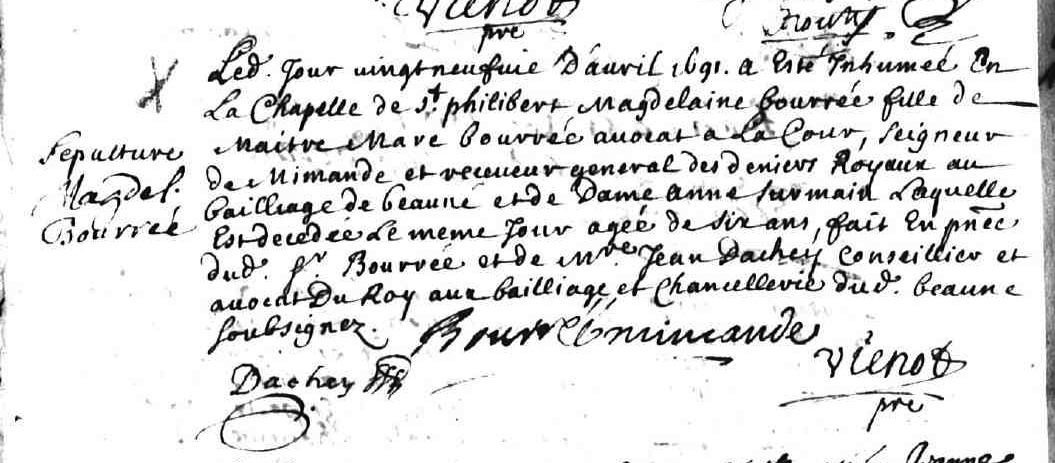 Vienot
pre
Led. Jour vingt neufuie D'auril 1691. a Esté Inhumeé En
La Chapelle de St. philibert Magdelaine bourrée fille de
Maitre Marc bourrée auocat a La Cour, seigneur
de Mimande et receueur general des deniers Royaux au
bailliage de beaune et de Dame anne surmain Laquelle
Est decedée Le même Jour agée de six ans, fait En pnce
dud. sr. Bourrée et de Mre. Jean Dachey Conseillier et
auocat Du Roy aux bailliage et Chancellerie dud. beaune
soubsignez.
Sepulture
Magdel.
Bourreé
Bourrée mimande
Dachey
Vienot
pre